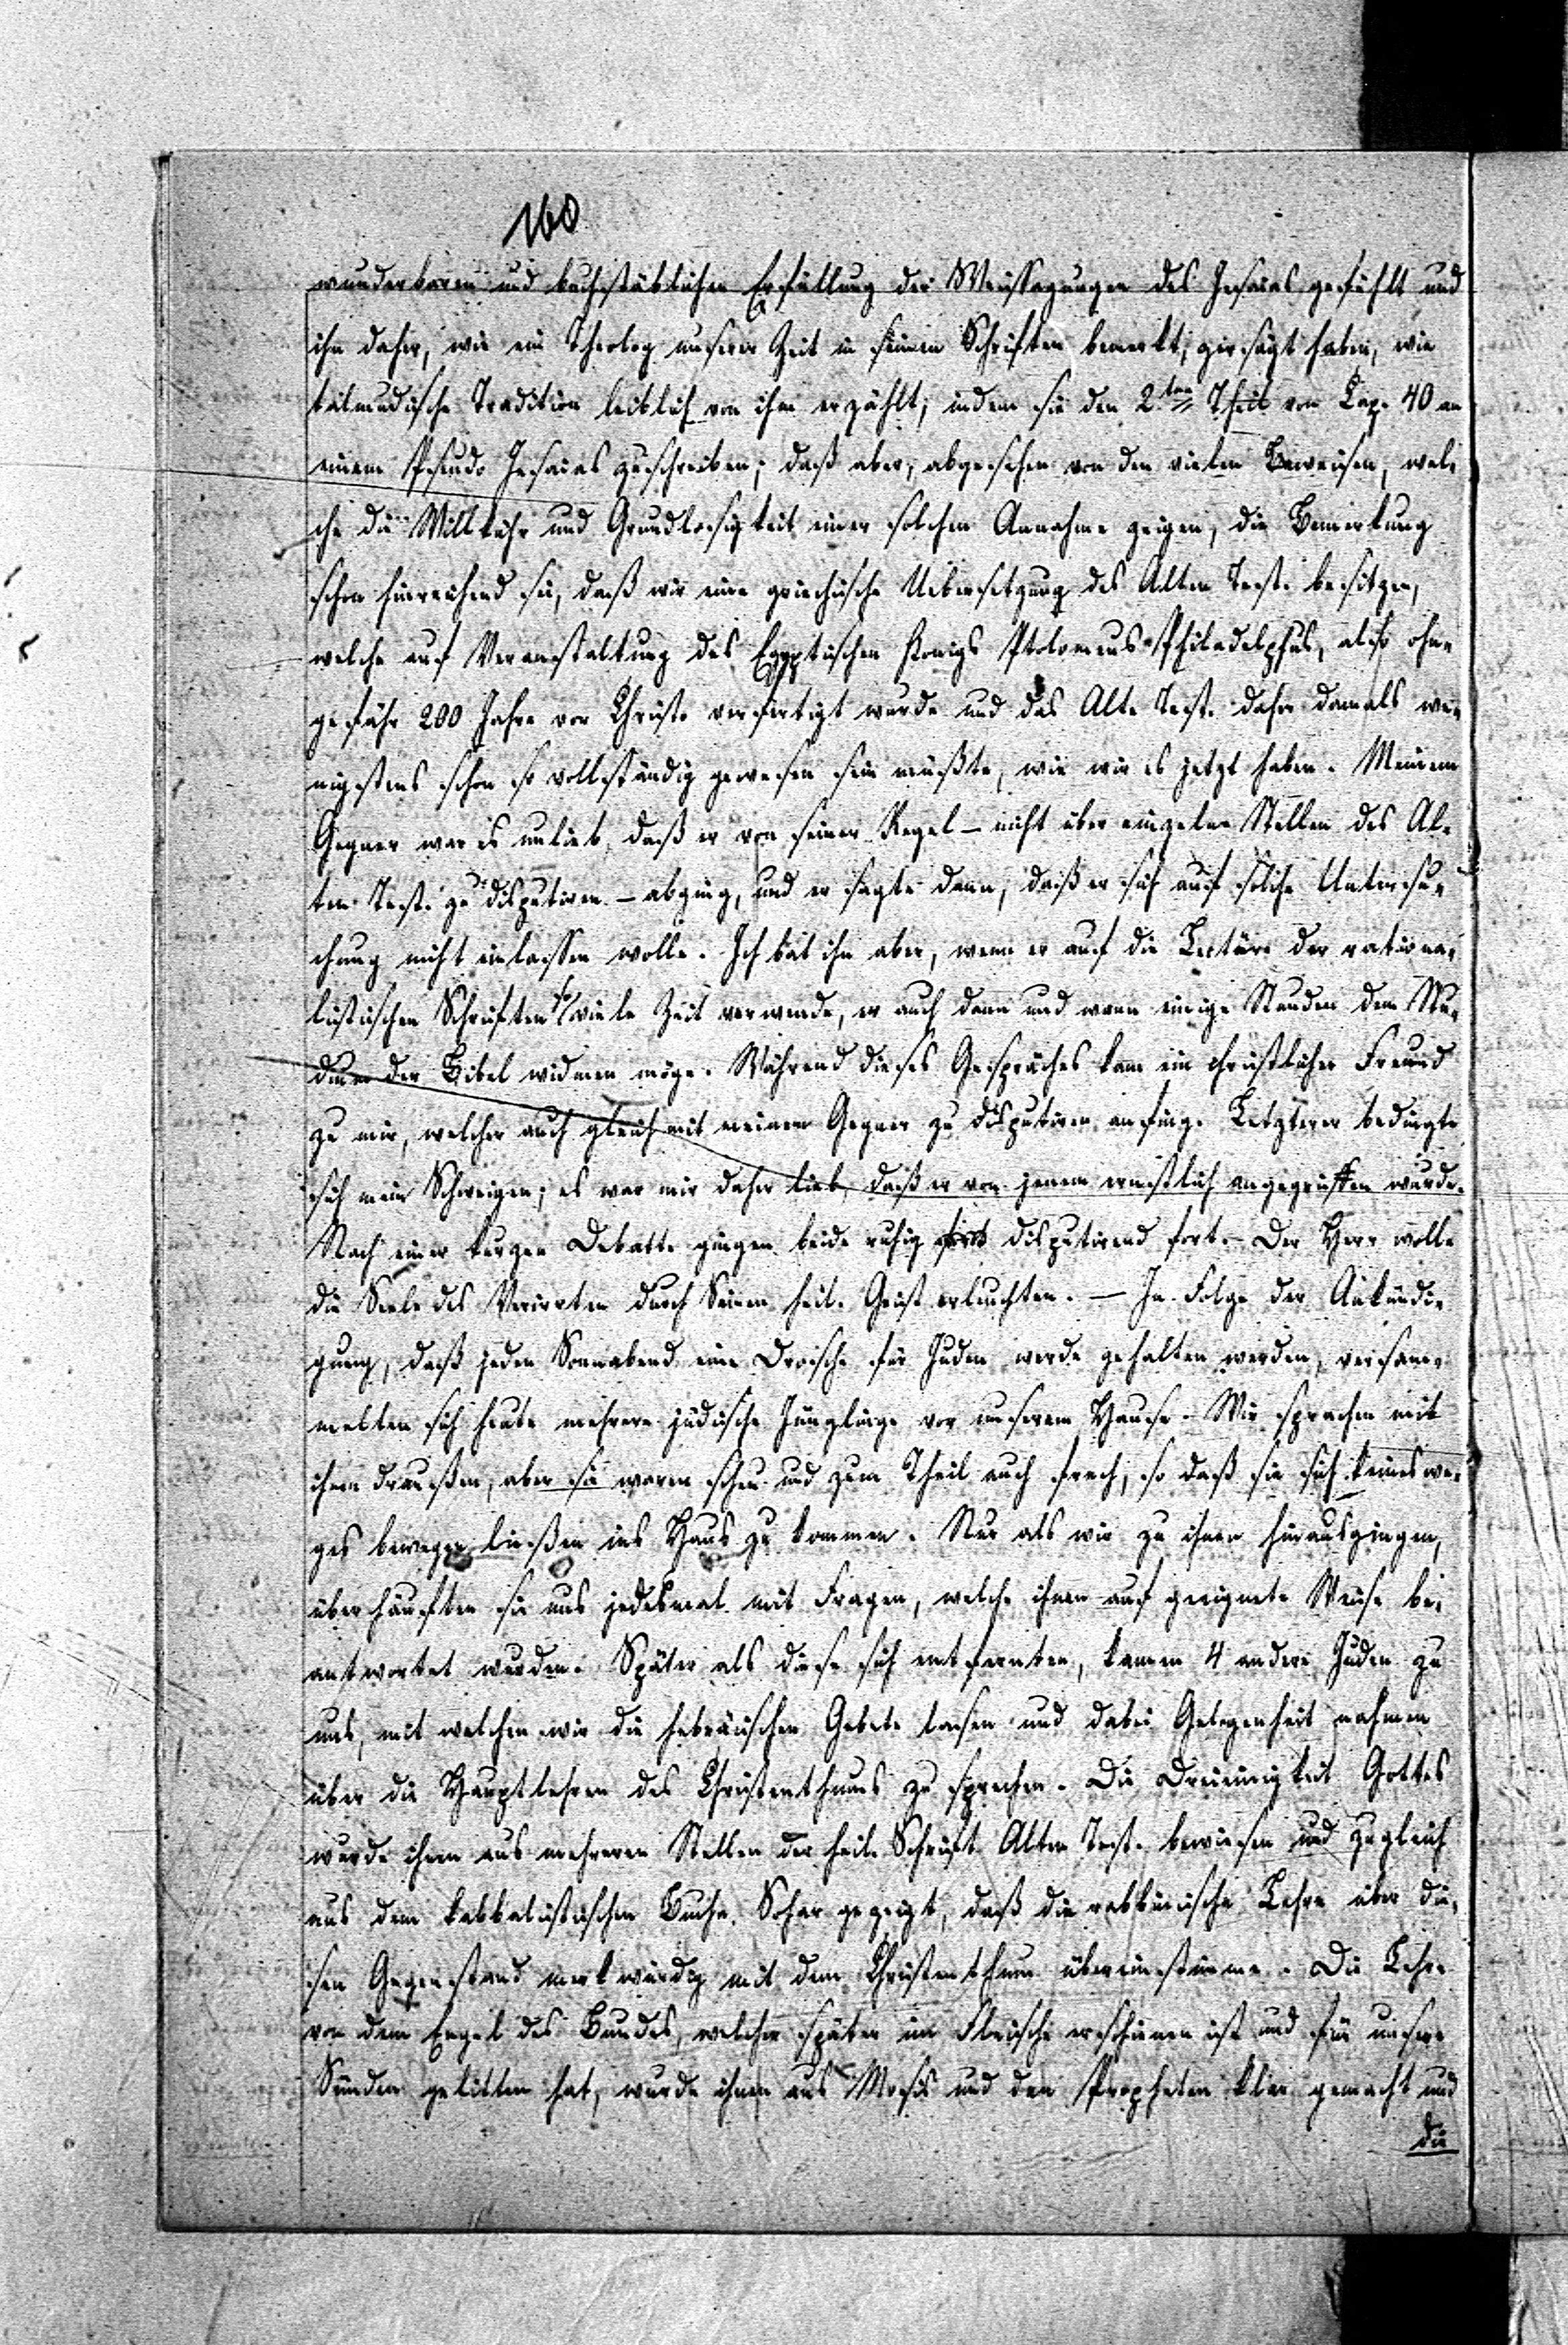 160
wunderbaren und buchstäblichen Erfüllung der Weissagungen des Jesaias gefühlt und
ihn daher, wie ein Theolog unserer Zeit in seinen Schriften bemerkt, zersägt haben, wie
talmudische Tradition leiblich von ihm erzählt; indem sie den 2ten Theil von Cap. 40 an
einem Pseudo Jesaias zuschreiben; daß aber, abgesehen von den vielen Beweisen, wel-
che die Willkühr und Grundlosigkeit einer solchen Annahme zeigen, die Bemerkung
schon hinreichend sei, daß wir eine griechische Uebersetzung des Alten Test. besitzen,
welche auf Veranstaltung des Egyptischen Königs Ptolomeus Philadelphus, also ohn-
gefähr 200 Jahre vor Christo verfertigt wurde und das Alte Test. daher damals we-
nigstens schon so vollständig gewesen sein müßte, wie wir es jetzt haben. Meinem
Gegner war es unlieb, daß er von seiner Regel – nicht über einzelne Stellen des Al-
ten Test. zu disputiren – abging, und er sagte dann, daß er sich auf solche Untersu-
chung nicht einlassen wolle. Ich bat ihn aber, wenn er auf die Lectüre der rationa-
listischen Schriften so viele Zeit verwende, er auch dann und wann einige Stunden dem Stu-
dium der Bibel widmen möge. Während dieses Gespräches kam ein christlicher Freund
zu mir, welcher auch gleich mit meinem Gegner zu disputiren anfing. Letzterer bedingte
sich mein Schweigen; es war mir daher lieb, daß er von jenem ernstlich angegriffen wurde.
Nach einer kurzen Debatte gingen beide ruhig disputirend fort. – Der Herr wolle
die Seele des Verirrten durch Seinen heil. Geist erleuchten. – In Folge der Ankündi-
gung, daß jeden Sonnabend eine Droische für Juden werde gehalten werden, versam-
melten sich heute mehrere jüdische Jünglinge vor unserem Hause. Wir sprachen mit
ihnen draußen, aber sie waren scheu und zum Theil auch frech, so daß sie sich keineswe-
ges bewegen ließen ins Haus zu kommen. Nur als wir zu ihnen hinausgingen,
überhäuften sie uns jedesmal mit Fragen, welche ihnen auf geeignete Weise be-
antwortet wurden. Später als diese sich entfernten, kamen 4 andere Juden zu
uns, mit welchen wir die hebräischen Gebete lasen und dabei Gelegenheit nahmen
über die Hauptlehren des Christenthums zu sprechen. Die Dreieinigkeit Gottes
wurde ihnen aus mehreren Stellen der heil. Schrift Alten Test. bewiesen und zugleich
aus dem kabbalistischen Buche Sohar gezeigt, daß die rabbinische Lehre über die-
sen Gegenstand merkwürdig mit dem Christenthum übereinstimme. Die Lehre
von dem Engel des Bundes, welcher später im Fleische erschienen ist und für unsere
Sünden gelitten hat, wurde ihnen aus Moses und den Propheten klar gemacht und
die